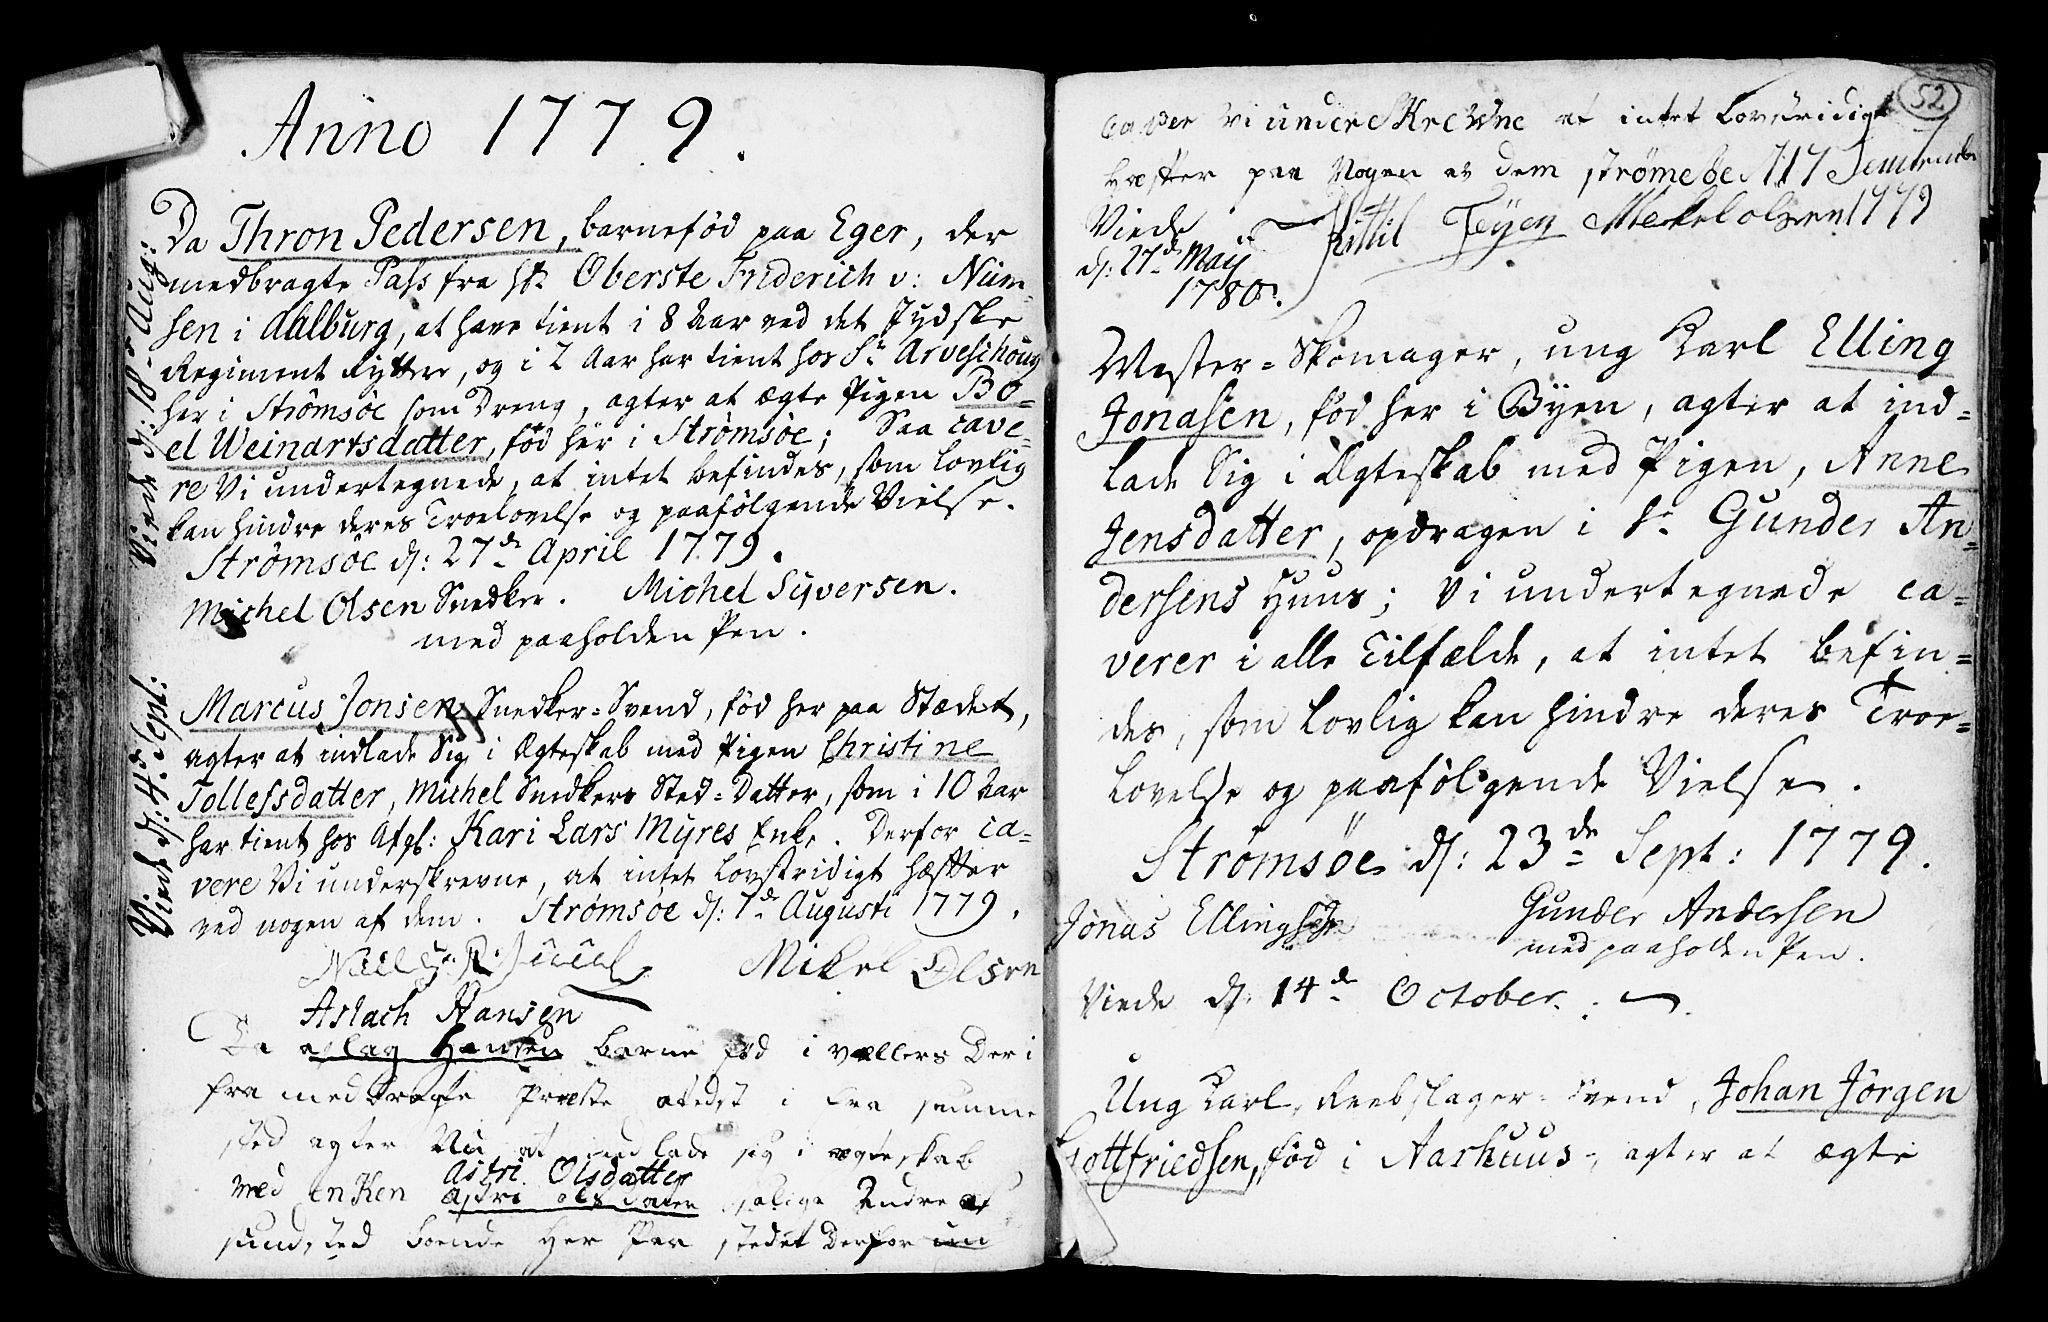 Anno 1779.
Viede d: 18de Aug:
Da Thron Pedersen, barnefød paa Eger, der
medbragte Pass fra Hr Oberste Friderich v: Num-
sen i Aalburg, at have tient i 8 Aar ved det Jydske
Regiment Ryttere, og i 2 Aar har tient hos Sr Arveschoug
her i Strømsøe som Dreng, agter at ægte Pigen Bo=
el Weinartsdatter, fød her i Strømsøe; Saa cave=
re Vi undertegnede, at intet befindes, som lovlig
kan hindre deres Troelovelse og paafølgende Vielse.
Strømsøe d: 27de April 1779.
Michel Olsen Snedker. Michel Syversen.
med paaholden Pen.
Viede d: 4de Sept:
Marcus Jonsen, Snedker=Svend, fød her paa Stædet,
agter at indlade Sig i Ægteskab med Pigen Christine
Tollefsdatter, Michel Snedkers Sted=Datter, som i 10 Aar
har tient hos Afgl: Kari Lars Myres Enke. Derfor ca=
vere Vi underskrevne, at intet Lovstridigt hæfter
ved nogen af dem. Strømsøe d: 7de Augusti 1779.
Juuel Mikel Olsen
Aslach Hansen
Da aslag Hansen barne fød i vallers Der i
fra med bragte Præste atedst i fra summe
sted agter Nu at ind lade sig i ægteskab
Astri Olsdatter
med Enken astri olsdater salige Endre
sundsted boende Her Paa stedet Derfor un
52
caver vi underskrevne at intet lovstridigt
Hæfter paa Nogen av dem strømsøe d 17
Kittil Tøyen Mekel olsen 1779
Viede
d: 27de Maij
1780.
Mester=Skomager, ung Karl Elling
Jonasen, fød her i Byen, agter at ind=
lade Sig i Ægteskab med Pigen, Anne
Jensdatter, opdragen i Sr Gunder An=
dersens Huus; Vi undertegnede ca=
verer i alle Tilfælde, at intet befin=
des, som lovlig kan hindre deres Troe=
lovelse og paafølgende Vielse.
Strømsøe d: 23de Sept: 1779.
Jonas Ellingsen Gunder Andersen
med paaholden Pen.
Viede d: 14de October.
Ung Karl, Reebslager=Svend, Johan Jørgen
Gottfriedsen, fød i Aarhuus, agter at ægte